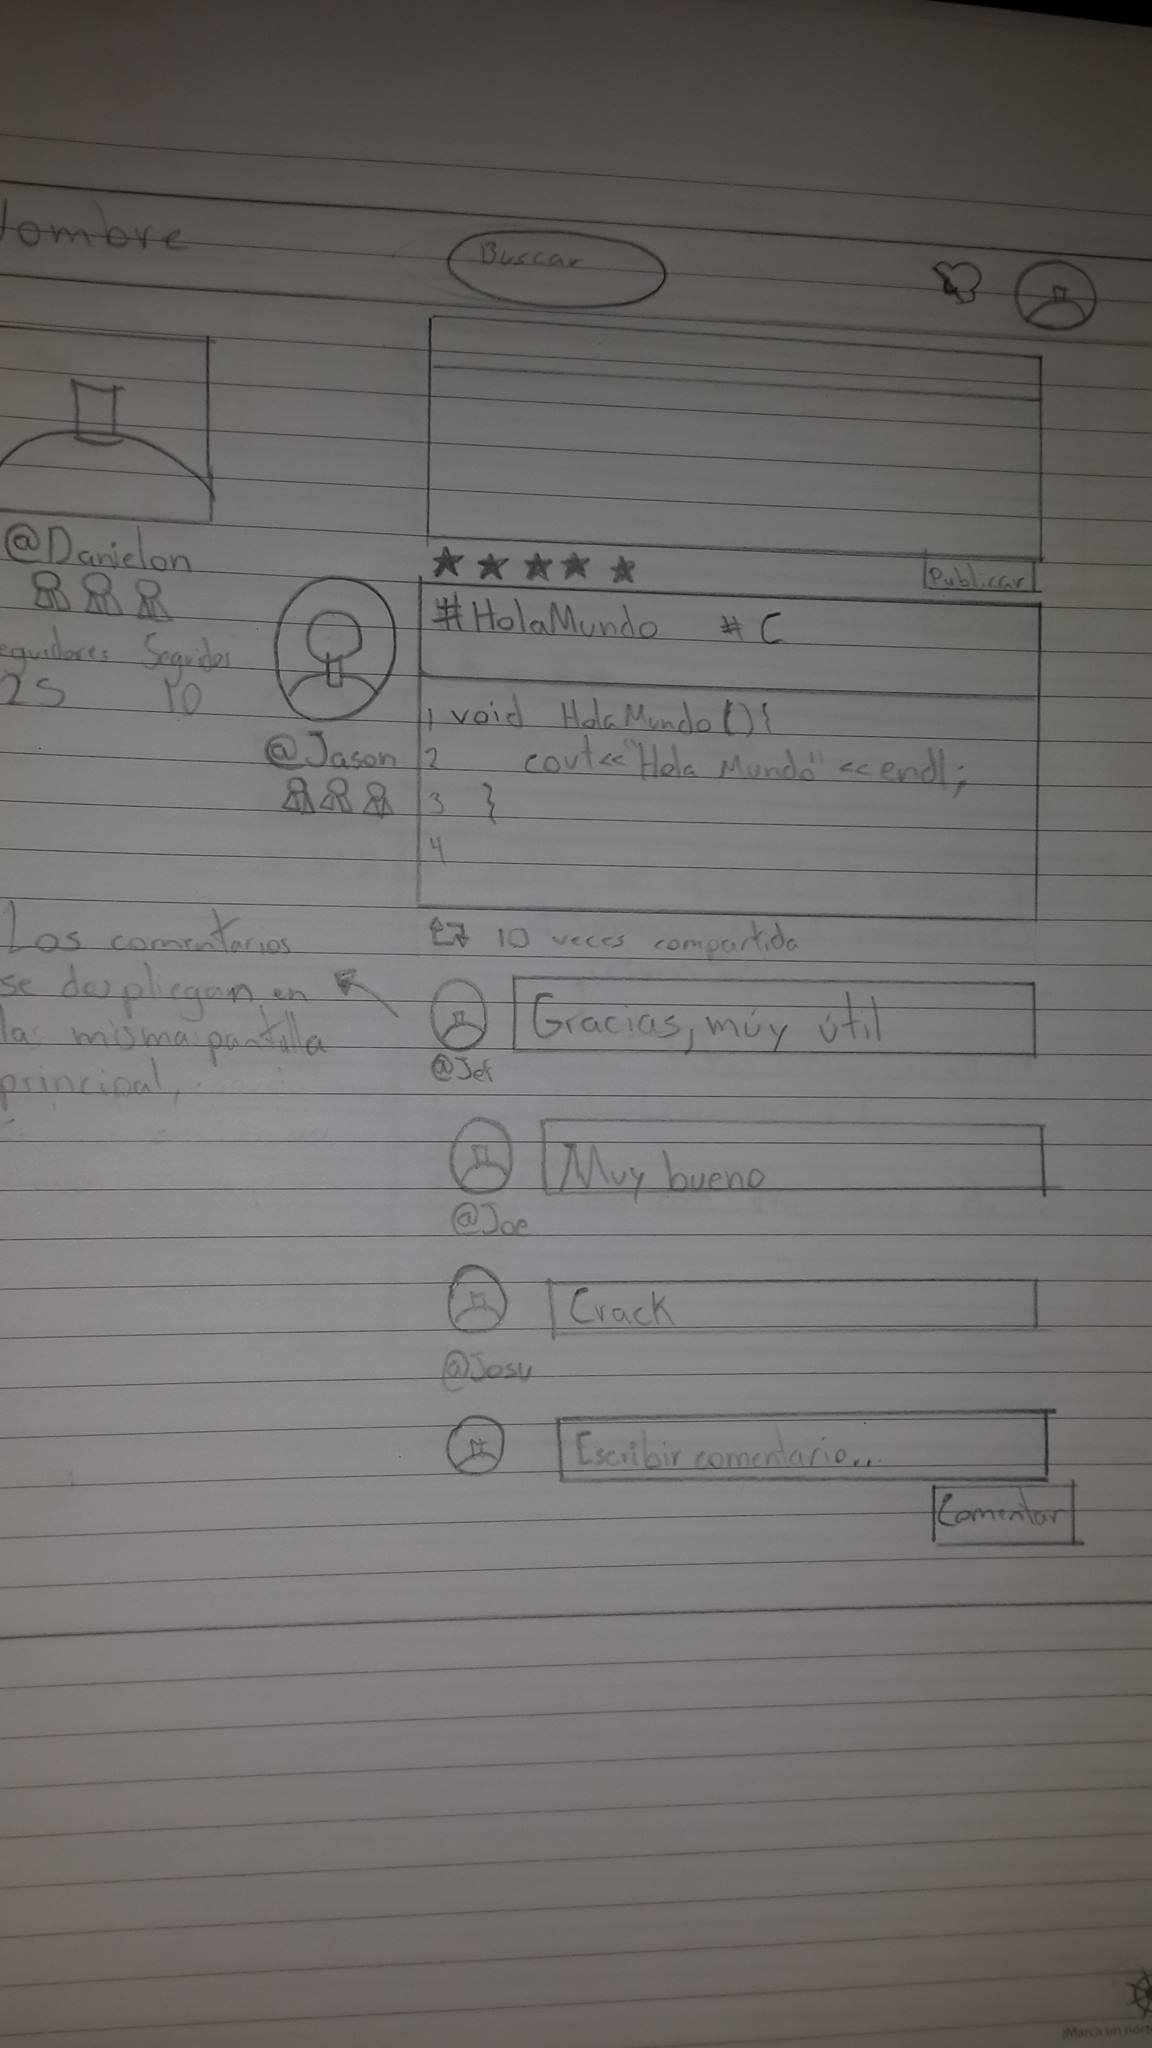 Nombre
Buscar
@Danielon
Seguidores Seguidos
25 10
Publicar
#HolaMundo #C
@Jason
1 void HolaMundo(){
2 cout<<"Hola Mundo"<<endl;
3 }
4
10 veces compartida
Los comentarios
se despliegan en
la misma pantalla
principal.
Gracias, múy útil
@Jef
Muy bueno
@Joe
Crack
@Josu
Escribir comentario...
Comentar
¡Marca un nort